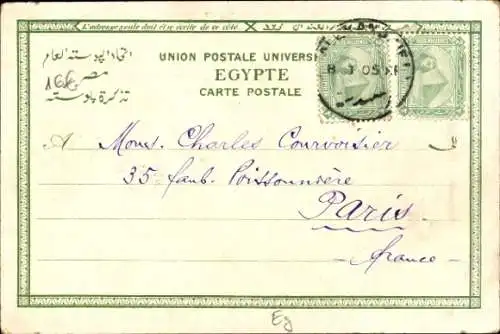 L'adresse seule doit être écrite de ce côté
UNION POSTALE UNIVERS
EGYPTE
CARTE POSTALE
اتحاد البوسته العام
مصر
تذكرة بوسته
166
8 I 05
A Mons. Charles Courvoisier
35 faub. Poissonnière
Paris
France
Eg